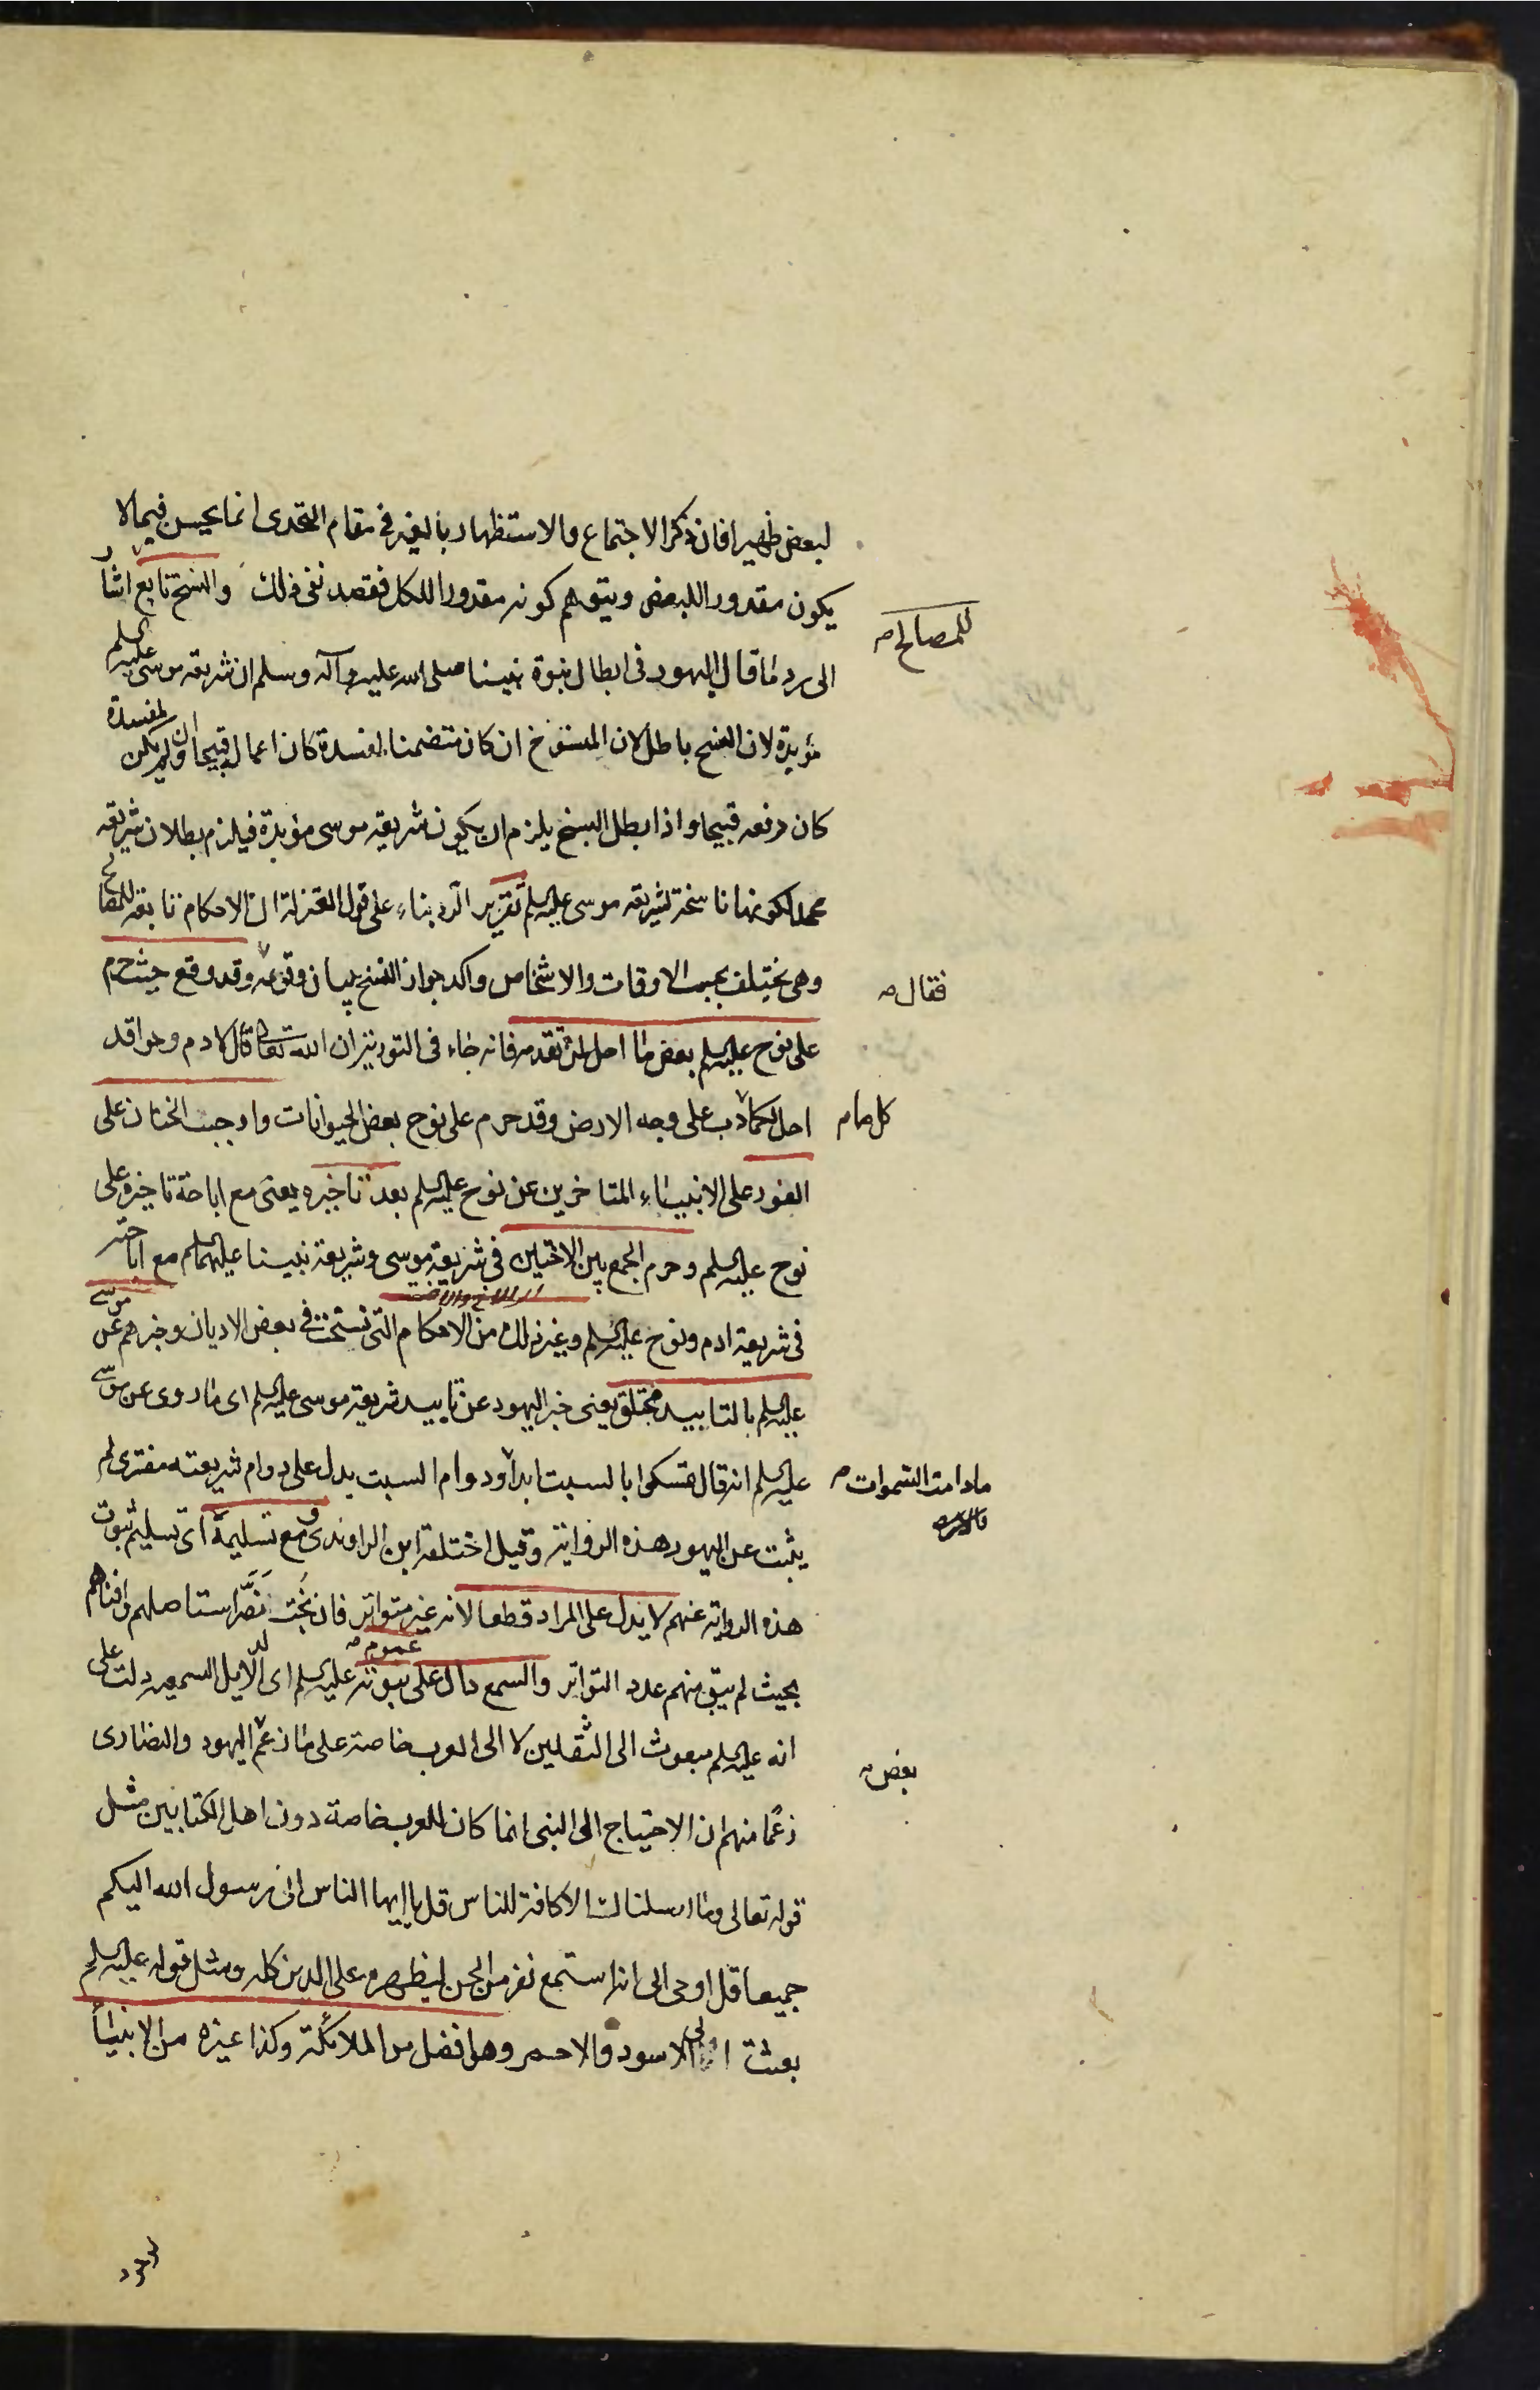 لبعض ظهيرا فان ذكر الاجتماع والاستظهار بالغير في مقام التحدى انما يحسن فيما لا
يكون مقدورا للبعض ويتوهم كونه مقدورا للكل فقصد نفى ذلك والنسخ تابع اشار
للمصالح صـ
الى رد ما قال اليهود فى ابطال نبوة نبينا صلى الله عليه وآله وسلم ان شريعة موسى عليه السلم
مؤبدة لان النسخ باطل لان المنسوخ ان كان متضمنا لمفسدة كان اعماله قبيحا وان لم يكن لمفسدة
كان رفعه قبيحا واذا بطل النسخ يلزم ان يكون شريعة موسى مؤبدة فيلزم بطلان شريعة
محمد لكونها ناسخة لشريعة موسى عليه السلم تقرير الرد بناء على قول المعتزلة ان الاحكام تابعة للمصالح
وهى يختلف بحسب الاوقات والاشخاص واكد جواز النسخ ببيان وقوعه وقد وقع حيث حرم
فقال صـ
على نوح عليه السلم بعض ما احل لمن تقدمه فانه جاء فى التورية ان الله تعالى قال لادم وحوا قد
احل لكما دب على وجه الارض وقد حرم على نوح بعض الحيوانات واوجب الختان على
كل ما صـ
الفور على الانبياء المتاخرين عن نوح عليه السلم بعد تاخيره يعنى مع اباحة تاخيره على
نوح عليه السلم وحرم الجمع بين الاختين فى شريعة موسى وشريعة نبينا عليهما السلم مع اباحته
فى شريعة ادم ونوح عليه السلم وغير ذلك من الاحكام التى نسخت فى بعض الاديان وخبرهم عن موسى
عليه السلم بالتابيد مختلق يعنى خبر اليهود عن تابيد شريعة موسى عليه السلم اى ما روى عن موسى
عليه السلم انه قال تمسكوا بالسبت ابدا ودوام السبت يدل على دوام شريعته مفترى لم
مادامت السموات صـ
والارض
يثبت عن اليهود هذه الرواية وقيل اختلقه ابن الراوندى ومع تسليمه اى تسليم ثبوت
هذه الرواية عنهم لا يدل على المراد قطعا لانه غير متواتر فان بُخْت نَصَّر استاصلهم وافناهم
بحيث لم يبق منهم عدد التواتر والسمع دال على عموم نبوته عليه السلم اى الدلايل السمعيه دلت على
انه عليه السلم مبعوث الى الثقلين لا الى العرب خاصة على ما زعم اليهود والنصارى
بعض صـ
زعما منهم ان الاحتياج الى النبى انما كان للعرب خاصة دون اهل الكتابين مثل
قوله تعالى وما ارسلناك الا كافة للناس قل يا ايها الناس انى رسول الله اليكم
جميعا قل اوحى الى انه استمع نفر من الجن ليظهره على الدين كله ومثل قوله عليه السلم
بعثت الى الاسود والاحمر وهو افضل من الملائكة وكذا غيره من الانبياء